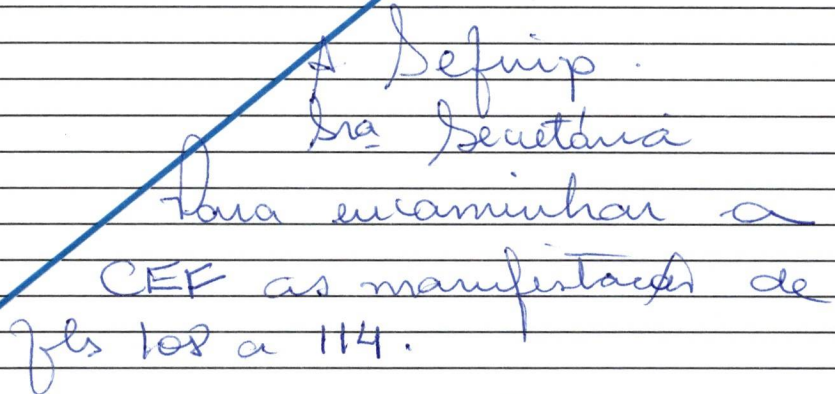 A Sefinp.
Sra Secretária
Para encaminhar a
CEF as manifestações de
fls 108 a 114.